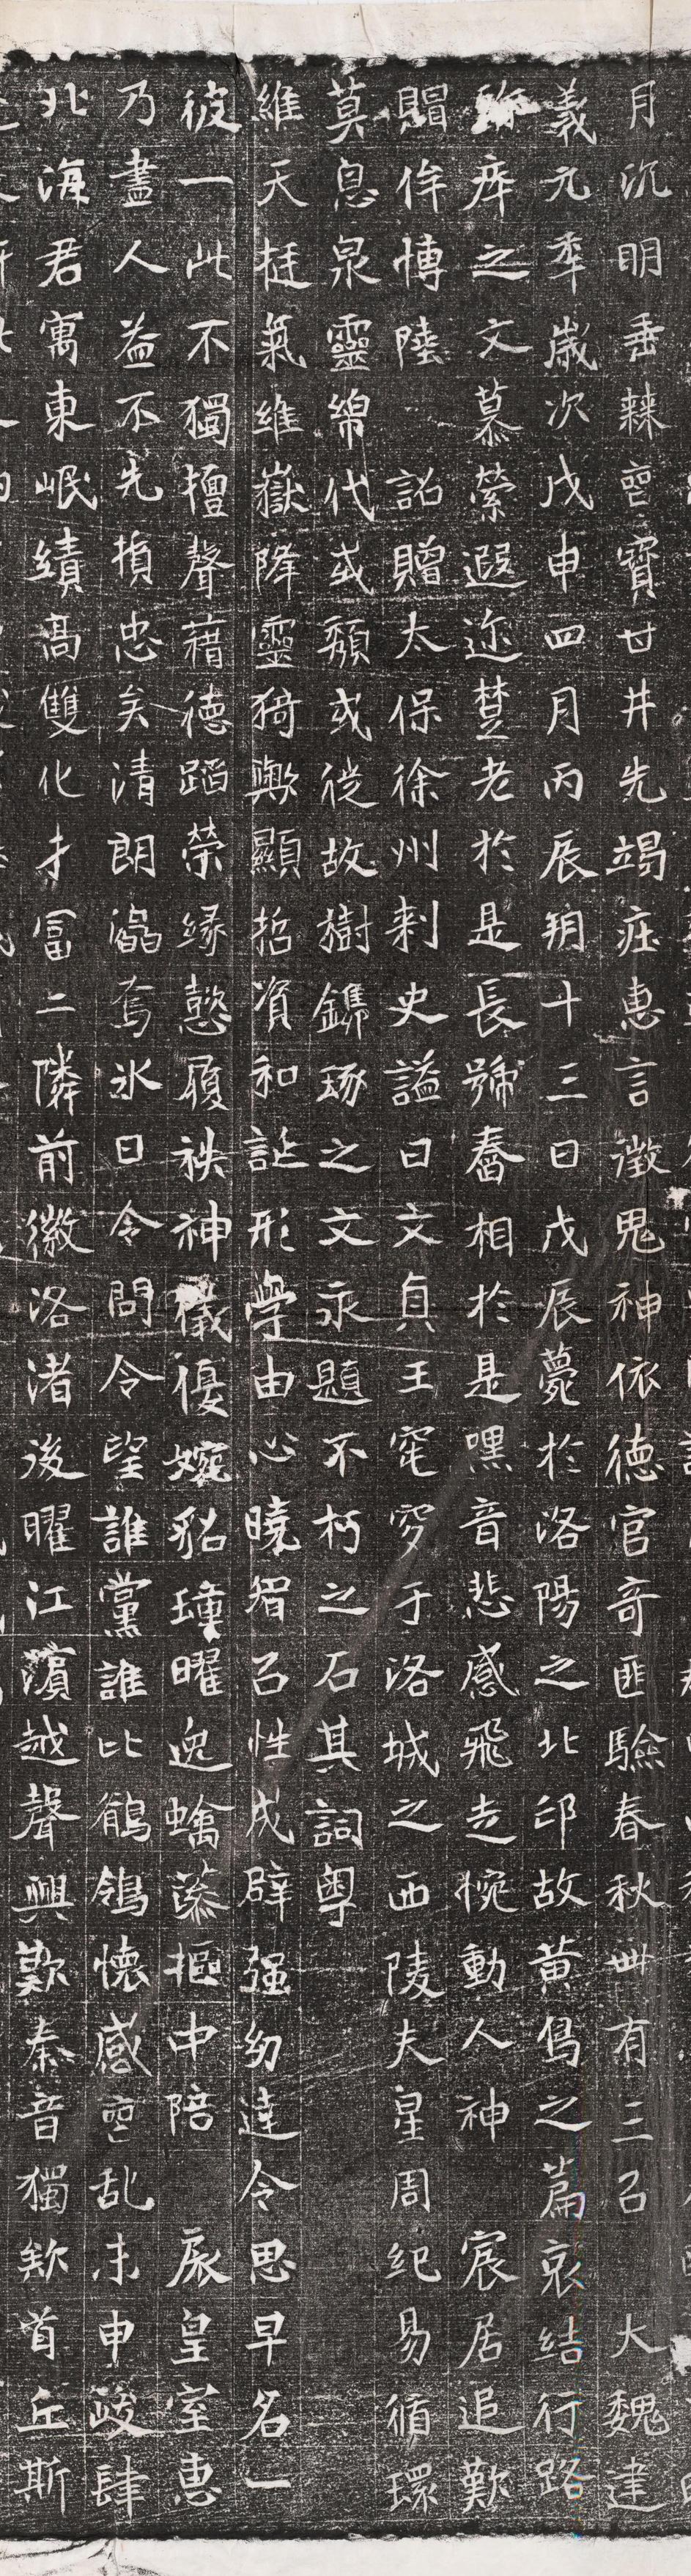 月沉明垂棘䘮寶甘井先竭疵惠言徵鬼神依德官奇匪驗春秋卌有三㠯大魏建
義九年歲次戊申四月丙辰朔十三日戊辰薨於洛陽之北邙故黃鳥之篇哀結行路
瘁之文慕縈遐迩楚老於是長號舂相於是嘿音悲感飛走惋動人神宸居追歎
賵侔博陸詔贈太保徐州刺史謚曰文貞王窀穸于洛城之西陵夫星周紀易循環
莫息泉靈綿代或頹或徙故樹鐫琢之文永題不朽之石其詞粵
維天挺氣維嶽降靈猗歟顯哲資和誕形學由心曉智㠯性成辟强幼達令思早名一
彼一此不獨擅聲藉德蹈榮緣懿履袟神儀優婉貂璯曜逸蟬蕤摳中陪扆皇室惠
乃盡人益不先損忠矣清朗瀛寫冰日令問令望誰黨誰比鶺鴒懷感䘮乱未申岐肆
北海君寓東岷績高雙化才冨二隣前徽洛渚後曜江濱越聲興歎秦音獨欷首丘斯